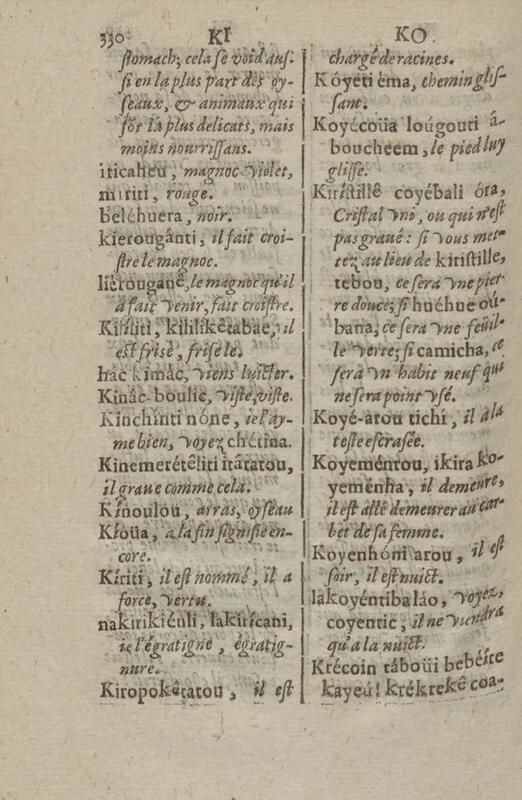 330 KI
stomach; cela se void aus-
si en la plus part des oy-
seaux, & animaux qui
sõt la plus delicats, mais
moins nourrissans.
iticaheu, magnoc violet,
miriti, rouge.
beléhuera, noir.
kierougánti, il fait croi-
stre le magnoc.
liérouganê, le magnoc qu'il
a fait venir, fait croistre.
Kiíliti, kililikêtabae, il
est frisé, frise le.
hác kimác, viens luicter.
Kinác-boulic, viste, viste.
Kinchínti nóne, ie l'ay-
me bien, voyez chétina.
Kinemerétêliti itátatou,
il graue comme cela.
Kínoulou, arras, oyseau
Kíoüa, a la fin signifie en-
core.
Kíriti, il est nommé, il a
force, vertu.
nakirikiénli, lakirícani,
ie l'égratigne, égratig-
nure.
Kiropokêtatou, il est
KO
chargé de racines.
Kóyeti éma, chemin glis-
sant.
Koyécoüa loúgouti â-
boucheem, le pied luy
glisse.
Kirístillê coyébali óra,
Cristal vni, ou qui n'est
pas graué: si vous met-
tez au lieu de kiristille,
tebou, ce sera vne pier-
re douce; si huéhue oú-
bana, ce sera vne feüil-
le verre; si camicha, ce
sera vn habit neuf qui
ne sera point vsé.
Koyé-atou tichi, il a la
teste escrasée.
Koyeméntou, ikira ko-
yeménha, il demeure,
il est allé demeurer au car-
bet de sa femme.
Koyenhóni arou, il est
soir, il est nuict.
lakoyéntiba láo, voyez,
coyentic, il ne viendra
qu'a la nuict.
Krécoin táboüi bebéite
kayeú! krékrekê coa-